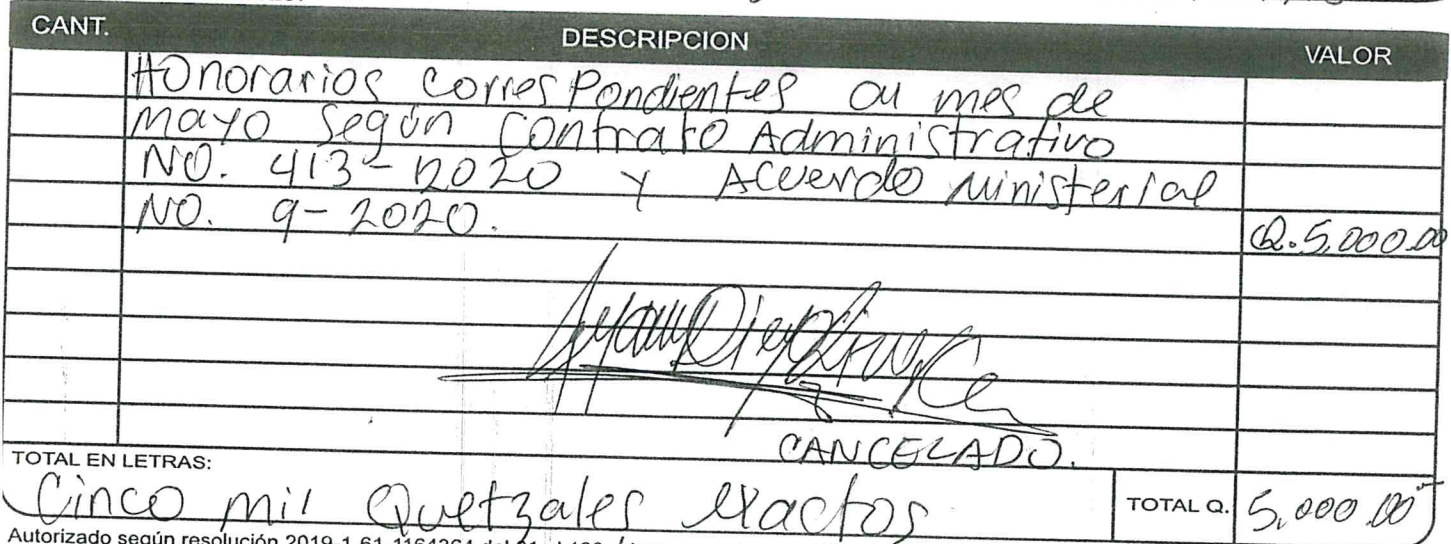 CANT. DESCRIPCION VALOR
Honorarios correspondientes al mes de
mayo según contrato Administrativo
NO. 413-2020 y Acuerdo Ministerial
NO. 9-2020. Q.5,000.00
CANCELADO.
TOTAL EN LETRAS:
Cinco mil Quetzales exactos TOTAL Q. 5,000.00
Autorizado según resolución 2019-1-61-1164364 del